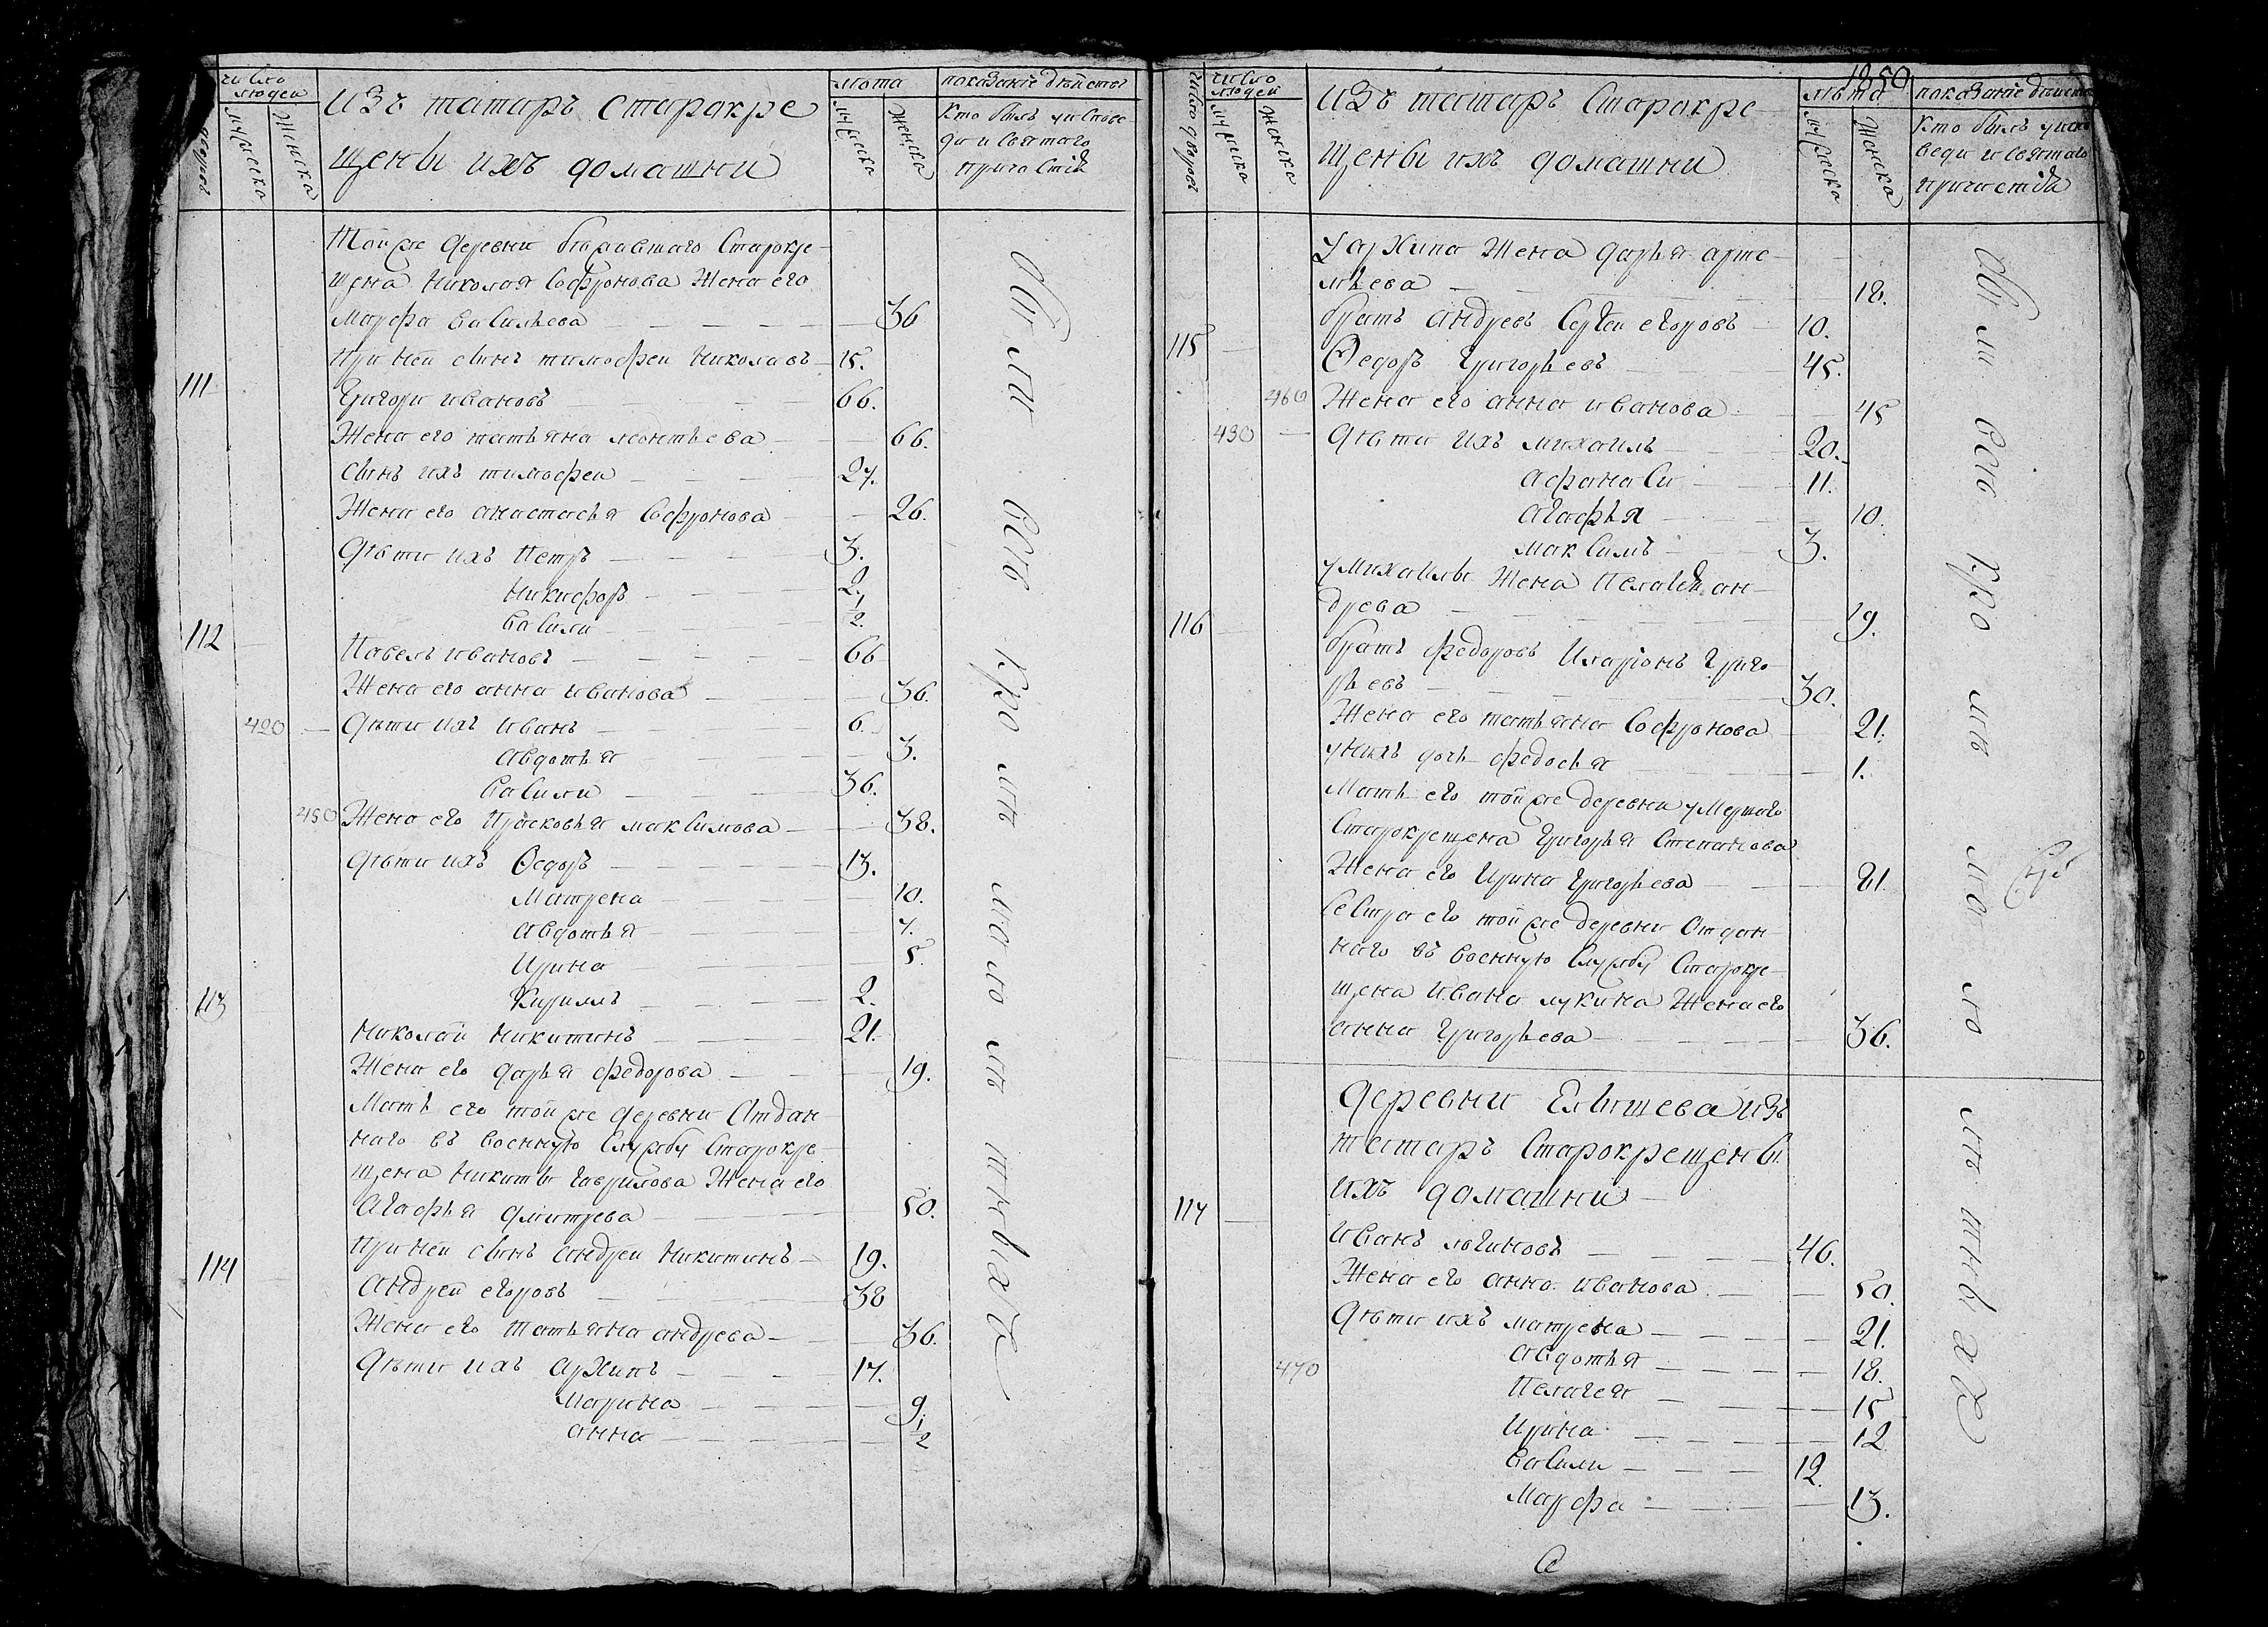 число
людей
дворовъ
мужеска
женска
изъ татаръ старокре
щены ихъ домашни
лѣта
мужеска
женска
показание действа
Кто былъ у испове
ди и святаго
причастія
Той же деревни бежавшаго Старокре
щена Николая Софронова Жена его
Марфа васильева 36
При ней сынъ тимофеи Николаевъ 15.
111 Григори ивановъ 66.
Жена его татьяна леонтьева 66.
сынъ ихъ тимофеи 27.
Жена его анастасья Софронова 26.
Дѣти ихъ Петръ 3.
Никифоръ 2.
васили 1/2.
112 Павелъ ивановъ 66
Жена его анна иванова 36.
420 Дѣти ихъ иванъ 6.
авдотья 3.
васили 36.
450 Жена его Прасковья максимова 38.
Дѣти ихъ Ѳедоръ 13.
Матрена 10.
авдотья 7.
Ирина 5.
Кирилъ 2.
113 Николай Никитинъ 21.
Жена его дарья федорова 19.
Мать его той же деревни Отдан
наго въ военную службу Старокре
щена Никиты гаврилова Жена его
Агафья дмитрева 50.
При ней сынъ андрей Никитинъ 19.
114 андрей егоровъ 38
Жена его Татьяна андрева 36.
Дѣти ихъ архипъ 17.
Марина 9.
анна 1/2
были всѣ кро мѣ мало лѣ тныхъ
1250
число дворовъ
число
людей
мужеска
женска
изъ татаръ Старокре
щены ихъ домашни
лѣта
мужеска
женска
показание действа
Кто былъ у испо
веди и святаго
причастія
У архипа Жена дарья арте
мьева 18.
братъ андревъ Сергеи егоровъ 10.
115 Ѳедоръ Григорьевъ 45.
460 Жена его анна иванова 45
430 Дѣти ихъ михаилъ 20.
афанаси 11.
агафья 10.
максимъ 3.
у михаилы Жена Пелагея ан
древа 19.
116 братъ федоровъ Иларіонъ Григо
рьевъ 30.
Жена его татьяна Софронова 21.
у нихъ дочь федосья 1.
Мать его той же деревни умершаго
Старокрещена Григорья Степанова
Жена его Ирина Григорьева 81.
Сестра его той же деревни Отдан
наго въ военную службу Старокре
щена ивана лукина Жена его
анна Григорьева 36.
Деревни Елышева изъ
татаръ Старокрещены
ихъ домашни
117 Иванъ логиновъ 46.
Жена его анна иванова 50.
Дѣти ихъ матрена 21.
470 авдотья 18.
Пелагея 15
Ирина 12
васили 12.
Марфа 13.
были всѣ кро мѣ мало лѣ тныхъ